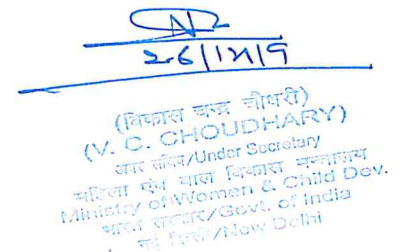 26/12/19
(विकास चन्द्र चौधरी)
(V. C. CHOUDHARY)
अवर सचिव/Under Secretary
महिला एवं बाल विकास मन्त्रालय
Ministry of Women & Child Dev.
भारत सरकार/Govt. of India
नई दिल्ली/New Delhi